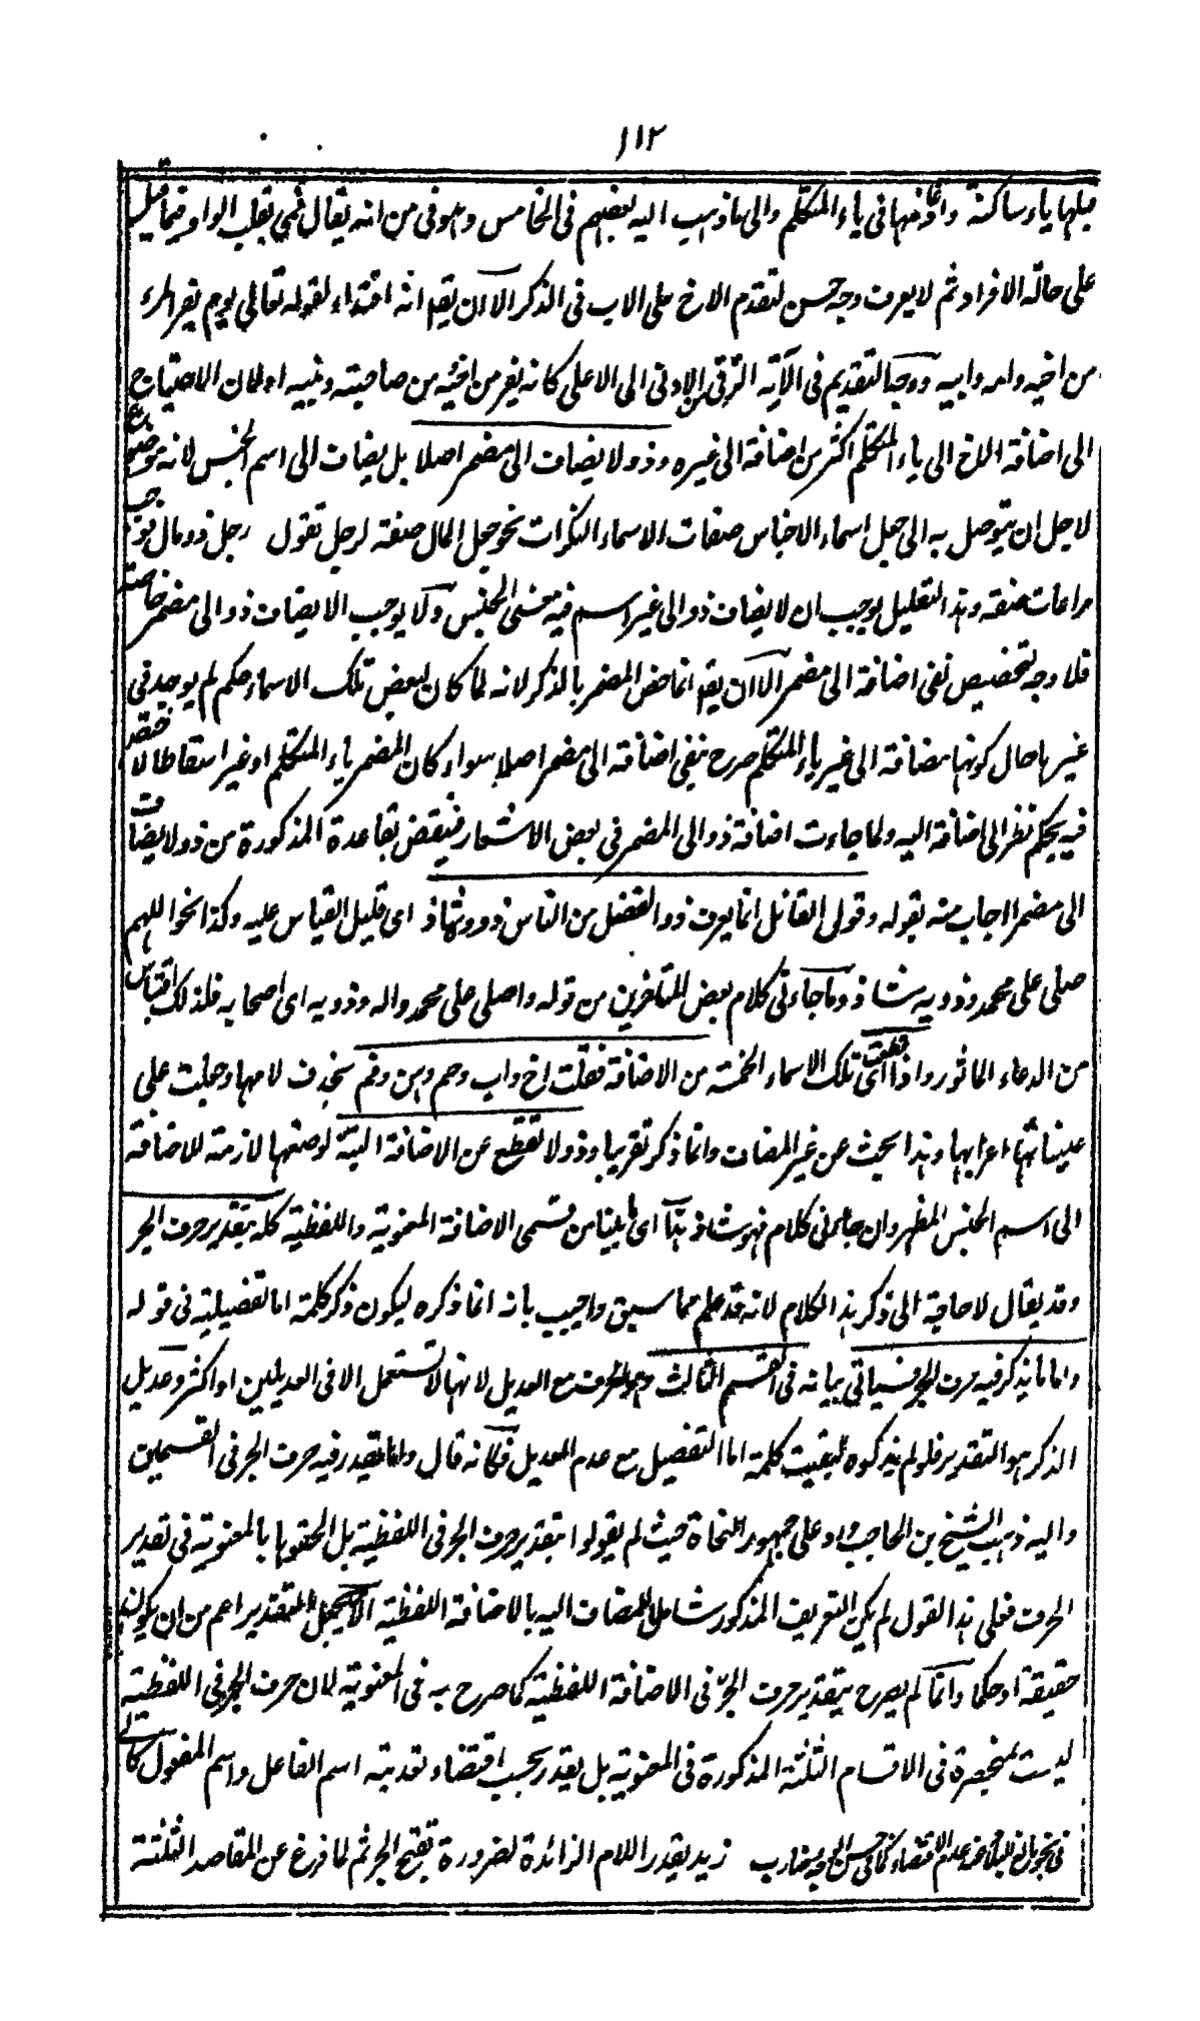 ١١٢
قبلها ياء ساكنة وادغمها فى ياء المتكلم والى ما ذهب اليه بعضهم فى الخامس وهو فى من انه يقال فمى بقلب الواو ميما قبلها
على حالة الافراد ثم لا يعرف وجه حسن لتقدم الاخ على الاب فى الذكر الا ان يقه انه اقتداء لقوله تعالى يوم يفر المرء
من اخيه وامه وابيه ووجه التقديم فى الآية الترقى من الادنى الى الاعلى كانه يفر من اخيه من صاحبته وبنيه او لان الاحتياج
الى اضافة الاخ الى ياء المتكلم اكثر من اضافة الى غيره وذو لا يضاف الى مضمر اصلا بل يضاف الى اسم الجنس لانه موضوع
لاجل ان يتوصل به الى جعل اسماء الاجناس صفات الاسماء النكرات نحو جعل المال صفة لرجل تقول رجل ذو مال
مراعات صفة وهذا التعليل يوجب ان لا يضاف ذو الى غير اسم فيه معنى الجنس ولا يوجب الا يضاف ذو الى مضمر خاصة
فلا وجه لتخصيص نفى اضافة الى مضمر الا ان يقه انما خص المضمر بالذكر لانه لما كان لبعض تلك الاسماء حكم لم يوجد فى
غيرها حال كونها مضافة الى غير ياء المتكلم صرح بنفى اضافة الى مضمر اصلا سواء كان المضمر ياء المتكلم او غير
فيه يحكم نظر الى اضافة اليه ولما جاءت اضافة ذو الى المضمر فى بعض الاشعار فينقض بقاعدة المذكورة من ذو لا يضاف
الى مضمر اجاب منه بقوله وقول القائل انما يعرف ذو الفضل من الناس ذووه شاذ اى قليل القياس عليه وكذا نحو اللهم
صلى على محمد وذويه شاذ وما جاء فى كلام بعض المتاخرين من قوله واصلى على محمد واله وذويه اى اصحابه فلذلك اقتباس
من الدعاء الماثور واذا قطعت اى تلك الاسماء الخمسة من الاضافة فقلت اخ واب وحم وهن وفم بحذف لامها وجعلت على
عيناتها اعرابها وهذا بحث عن غير المضاف وانما ذكر تقريبا وذو لا تقطع عن الاضافة البتة لوضعها لازمة للاضافة
الى اسم الجنس المظهر وان جاء فى كلام فهو شاذ هذا اى ما بينا من قسمى الاضافة المعنوية واللفظية كله بتقدير حرف الجر
وقد يقال لا حاجة الى ذكر هذا الكلام لانه قد علم مما سبق واجيب بانه انما ذكره ليكون ذكر كلمة اما تفصيلية فى قوله
واما ما يذكر فيه حرف الجر فسياتى بيانه فى القسم الثالث وهو الحرف مع العديل لانها لا تستعمل الا فى العديلين او اكثر وعديل
الذكر هو التقدير فلو لم يذكره لبقيت كلمة اما التفصيل مع عدم العديل فكانه قال واما يقدر فيه حرف الجر فى القسمين
واليه ذهب الشيخ بن الحاجب وا وعلى جمهور النحاة حيث لم يقولوا بتقدير حرف الجر فى اللفظية بل الحقوها بالمعنوية فى تقدير
الحرف فعلى هذا القول لم يكن التعريف المذكور شاملا للمضاف اليه بالاضافة اللفظية الا ان يجعل التقدير اعم من ان يكون
حقيقة او حكما وانما لم يصرح بتقدير حرف الجر فى الاضافة اللفظية كما صرح به فى المعنوية لان حرف الجر فى اللفظية
ليست منحصرة فى الاقسام الثلثة المذكورة فى المعنوية بل يقدر بحسب اقتضاء تعدية اسم الفاعل واسم المفعول
زيد يقدر اللام الزائدة لضرورة تقبح الجر ثم لما فرغ عن المقاصد الثلثة